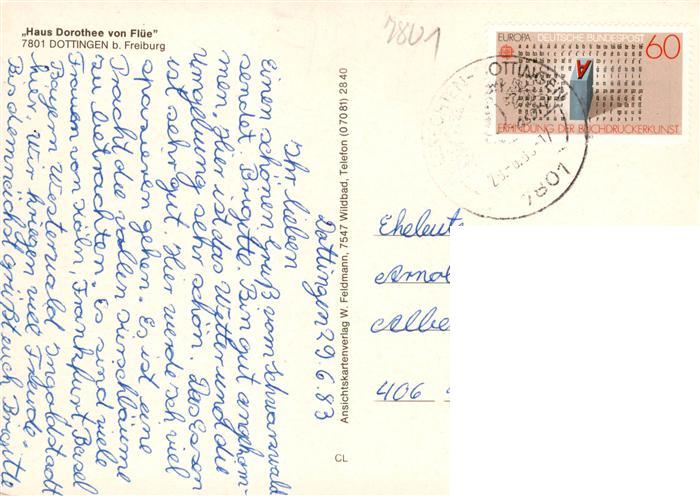 „Haus Dorothee von Flüe"
7801 DOTTINGEN b. Freiburg
7801
EUROPA DEUTSCHE BUNDESPOST 60
ERFINDUNG DER BUCHDRUCKERKUNST
7801
Dottingen 29.6.83
Ihr lieben
Einen schönen Gruß vom Schwarzwald
sendet Brigitte. Bin gut angekom-
men. Hier ist das Wetter und die
Umgebung sehr schön. Das Essen
ist sehr gut. Hier werde ich viel
spazieren gehen. Es ist eine
Pracht die vollen Kirschbäume
zu betrachten. Es sind viele
Frauen von Köln, Frankfurt Basel
Bayern Westerwald Ingolstadt
hier, wir kriegen viel Freude.
Bis demnächst grüßt euch Brigitte
Ansichtskartenverlag W. Feldmann, 7547 Wildbad, Telefon (07081) 2840
CL
Eheleut
Arnol
Albe
406